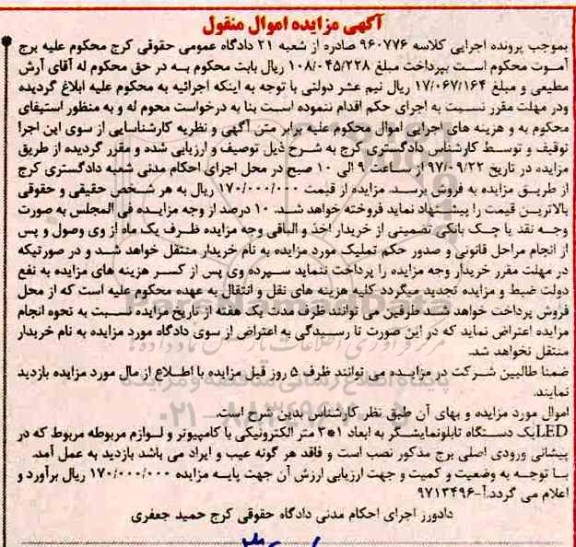 آگهی مزایده اموال منقول
بموجب پرونده اجرایی کلاسه ۹۶۰۷۷۶ صادره از شعبه ۲۱ دادگاه عمومی حقوقی کرج محکوم علیه برج
آموت محکوم است بپرداخت مبلغ ۱۰۸/۰۴۵/۲۲۸ ریال بابت محکوم به در حق محکوم له آقای آرش
مطیعی و مبلغ ۱۷/۰۶۷/۱۶۴ ریال نیم عشر دولتی با توجه به اینکه اجرائیه به محکوم علیه ابلاغ گردیده
ودر مهلت مقرر نسبت به اجرای حکم اقدام ننموده است بنا به درخواست محوم له و به منظور استیفای
محکوم به و هزینه های اجرایی اموال محکوم علیه برابر متن آگهی و نظریه کارشناسایی از سوی این اجرا
توقیف و توسط کارشناس دادگستری کرج به شرح ذیل توصیف و ارزیابی شده و مقرر گردیده از طریق
مزایده در تاریخ ۹۷/۰۹/۲۲ از ساعت ۹ الی ۱۰ صبح در محل اجرای احکام مدنی شعبه دادگستری کرج
از طریق مزایده به فروش برسد. مزایده از قیمت ۱۷۰/۰۰۰/۰۰۰ ریال به هر شخص حقیقی و حقوقی
بالاترین قیمت را پیشنهاد نماید فروخته خواهد شد. ۱۰ درصد از وجه مزایده فی المجلس به صورت
وجه نقد یا چک بانکی تضمینی از خریدار اخذ و الباقی وجه مزایده ظرف یک ماه از وی وصول و پس
از انجام مراحل قانونی و صدور حکم تملیک مورد مزایده به نام خریدار منتقل خواهد شد و در صورتیکه
در مهلت مقرر خریدار وجه مزایده را پرداخت ننماید سپرده وی پس از کسر هزینه های مزایده به نفع
دولت ضبط و مزایده تجدید میگردد کلیه هزینه های نقل و انتقال به عهده محکوم علیه است که از محل
فروش پرداخت خواهد شد طرفین می توانند ظرف مدت یک هفته از تاریخ مزایده نسبت به نحوه انجام
مزایده اعتراض نماید که در این صورت تا رسیدگی به اعتراض از سوی دادگاه مورد مزایده به نام خریدار
منتقل نخواهد شد.
ضمنا طالبین شرکت در مزایده می توانند ظرف ۵ روز قبل مزایده با اطلاع از مال مورد مزایده بازدید
نمایند.
اموال مورد مزایده و بهای آن طبق نظر کارشناس بدین شرح است.
LEDیک دستگاه تابلونمایشگر به ابعاد ۱*۳ متر الکترونیکی با کامپیوتر و لوازم مربوطه مربوط که در
پیشانی ورودی اصلی برج مذکور نصب است و فاقد هر گونه عیب و ایراد می باشد بازدید به عمل آمد.
با توجه به وضعیت و کمیت و جهت ارزیابی ارزش آن جهت پایه مزایده ۱۷۰/۰۰۰/۰۰۰ ریال برآورد و
اعلام می گردد.آ-۹۷۱۳۴۹۶
دادورز اجرای احکام مدنی دادگاه حقوقی کرج حمید جعفری